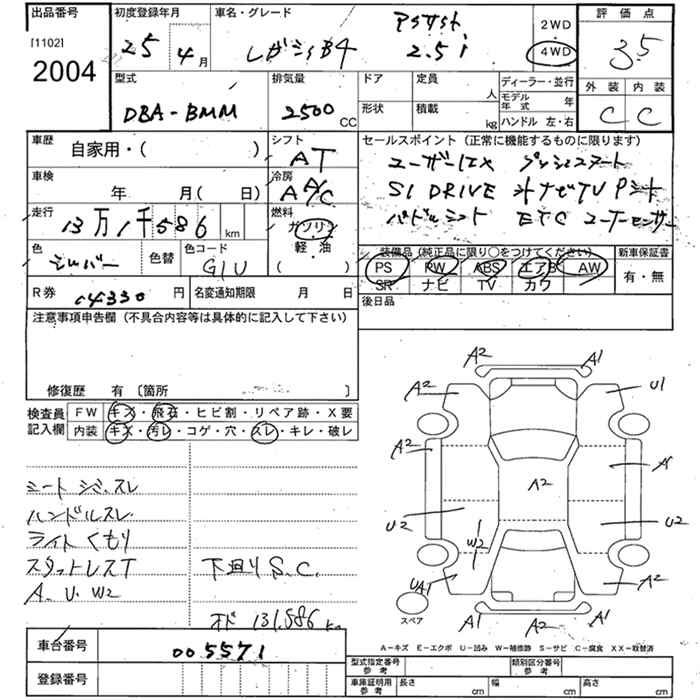 出品番号 初度登録年月 車名・グレード 評価点
[1102] 2004 25年 4月 レガシィB4 2.5i 2WD 4WD 3.5
型式 排気量 ドア 定員 人 ディーラー・並行 外装 内装
DBA-BMM 2500 CC 形状 積載 kg モデル年式 年 ハンドル 左・右 C C
車歴 自家用・( ) シフト AT セールスポイント (正常に機能するものに限ります)
車検 年 月( 日) 冷房 A A/C ユーザー1EX プッシュスタート
走行 13万1千586 km 燃料 ガソリン 軽・油 ( ) SI DRIVE 外ナビTV Pシート
パドルシフト ETC コーナーセンサー
色 シルバー 色替 色コード G1U 装備品 (純正品に限り○をつけてください) 新車保証書
PS PW ABS エアB AW 有・無
SR ナビ TV カワ
R券 14330 円 名変通知期限 月 日 後日品
注意事項申告欄 (不具合内容等は具体的に記入して下さい)
修復歴 有 〔箇所 〕
検査員記入欄 FW キズ・飛石・ヒビ割・リペア跡・X要
内装 キズ・汚レ・コゲ・穴・スレ・キレ・破レ
シート シミ.スレ
ハンドルスレ
ライトくもり
スタットレスT 下廻りS.C.
A. U. W2
オド 131,586 km
A2 A1
A2 U1
A2 A1
A2
U2 U2
W2
UA1 A2
A1 A2 A1
スペア
A-キズ E-エクボ U-凹み W-補修跡 S-サビ C-腐食 XX-取替済
車台番号 005571
登録番号
型式指定番号 参考 類別区分番号 参考
車庫証明用 参考 長さ cm 幅 cm 高さ cm